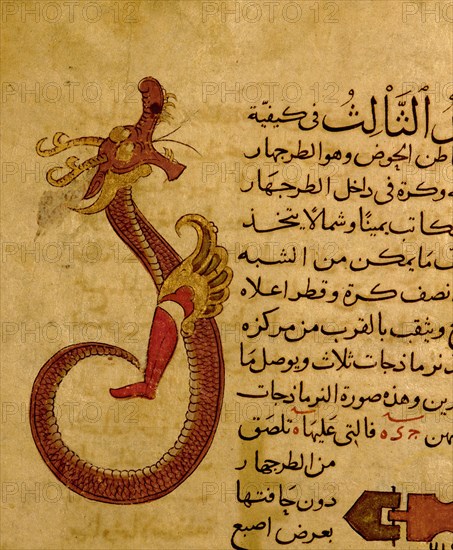 الثَّالِثُ في كيفيّة
طن الحوض وهو الطرجهار
وكرة في داخل الطرجهار
كاتب يمينًا وشمالًا يتخذ
مَا يمكن من الشبه
نصف كرة وقطر اعلاه
ويثقب بالقرب من مركزه
نرماذجات ثلاث ويوصل مَا
وهذه صورة النرماذجات
فالتي عَليهَا ه تلصَق
من الطرجهار
دون حَافتها
بعرض اصبع